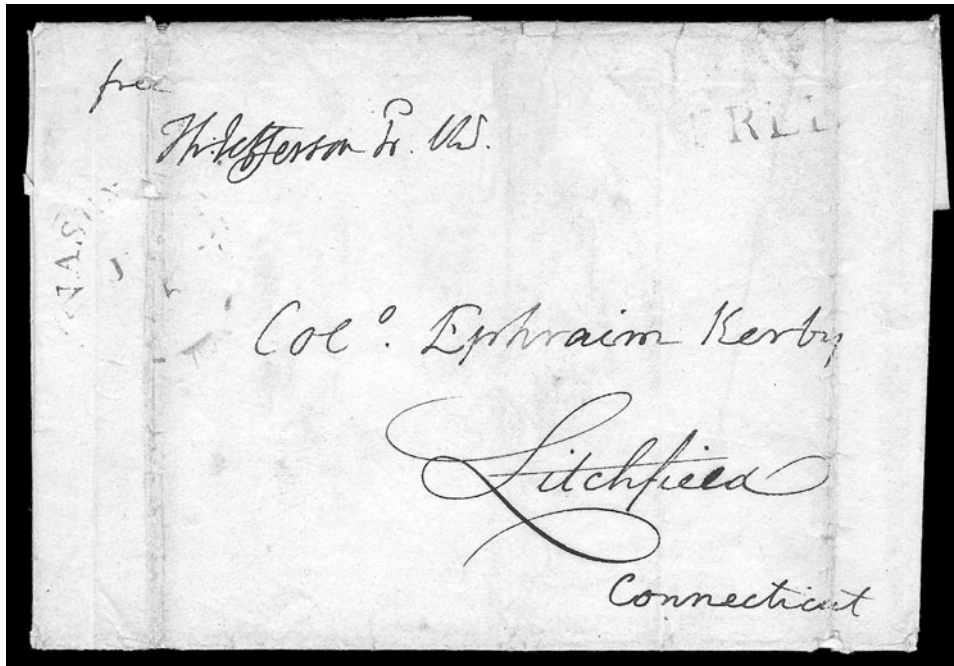 free
FREE
Th: Jefferson Pr. US.
WAS
Col.º Ephraim Kerby
Litchfield
Connecticut